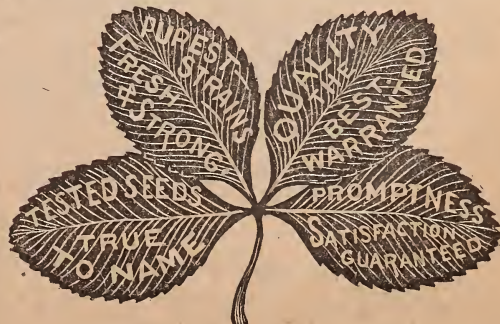 PUREST
STRAINS
FRESH
& STRONG
QUALITY
THE
BEST
WARRANTED
TESTED SEEDS
TRUE
TO NAME
PROMPTNESS
SATISFACTION
GUARANTEED